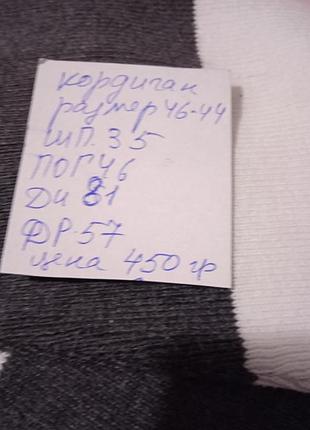 кордиган
размер 46-44
ШП. 35
ПОГ 46
ДИ 81
ДР. 57
цена 450 гр